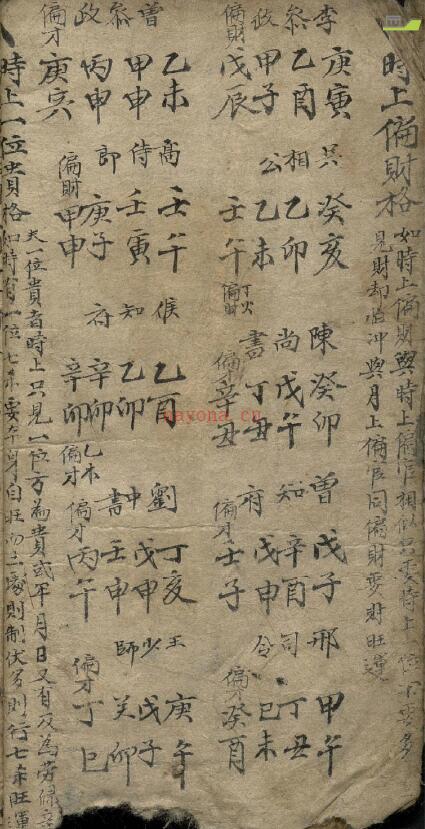 時上偏財格
如時上偏財與時上偏官相似只要時上一位不要多
見財却怕沖與月上偏官同偏財要財旺運
李 庚寅 吳 癸亥 陳 癸卯 曾 戊子 邢 甲午
參 乙酉 相 乙卯 尚 戊午 知 辛酉 司 丁丑
政 甲子 公 乙未 書 丁丑 府 戊申 令 己未
偏財 戊辰 壬午 丁火偏財 偏財 辛丑 偏才 壬子 偏才 癸酉
曾 乙未 高 壬午 侯 乙酉 劉 丁亥 王 庚午
參 甲申 侍 壬寅 知 乙卯 中 戊申 少 戊子
政 丙申 郎 庚子 府 辛卯 書 壬申 師 癸卯
偏才 庚寅 偏財 甲申 辛卯 乙木偏才 偏才 丙午 偏才 丁巳
時上一位貴格
夫一位貴者時上只見一位方為貴或年月日又有反為勞碌辛
如時有一位七杀要本身自旺而三處制伏多則行七杀旺運
nayona.cn